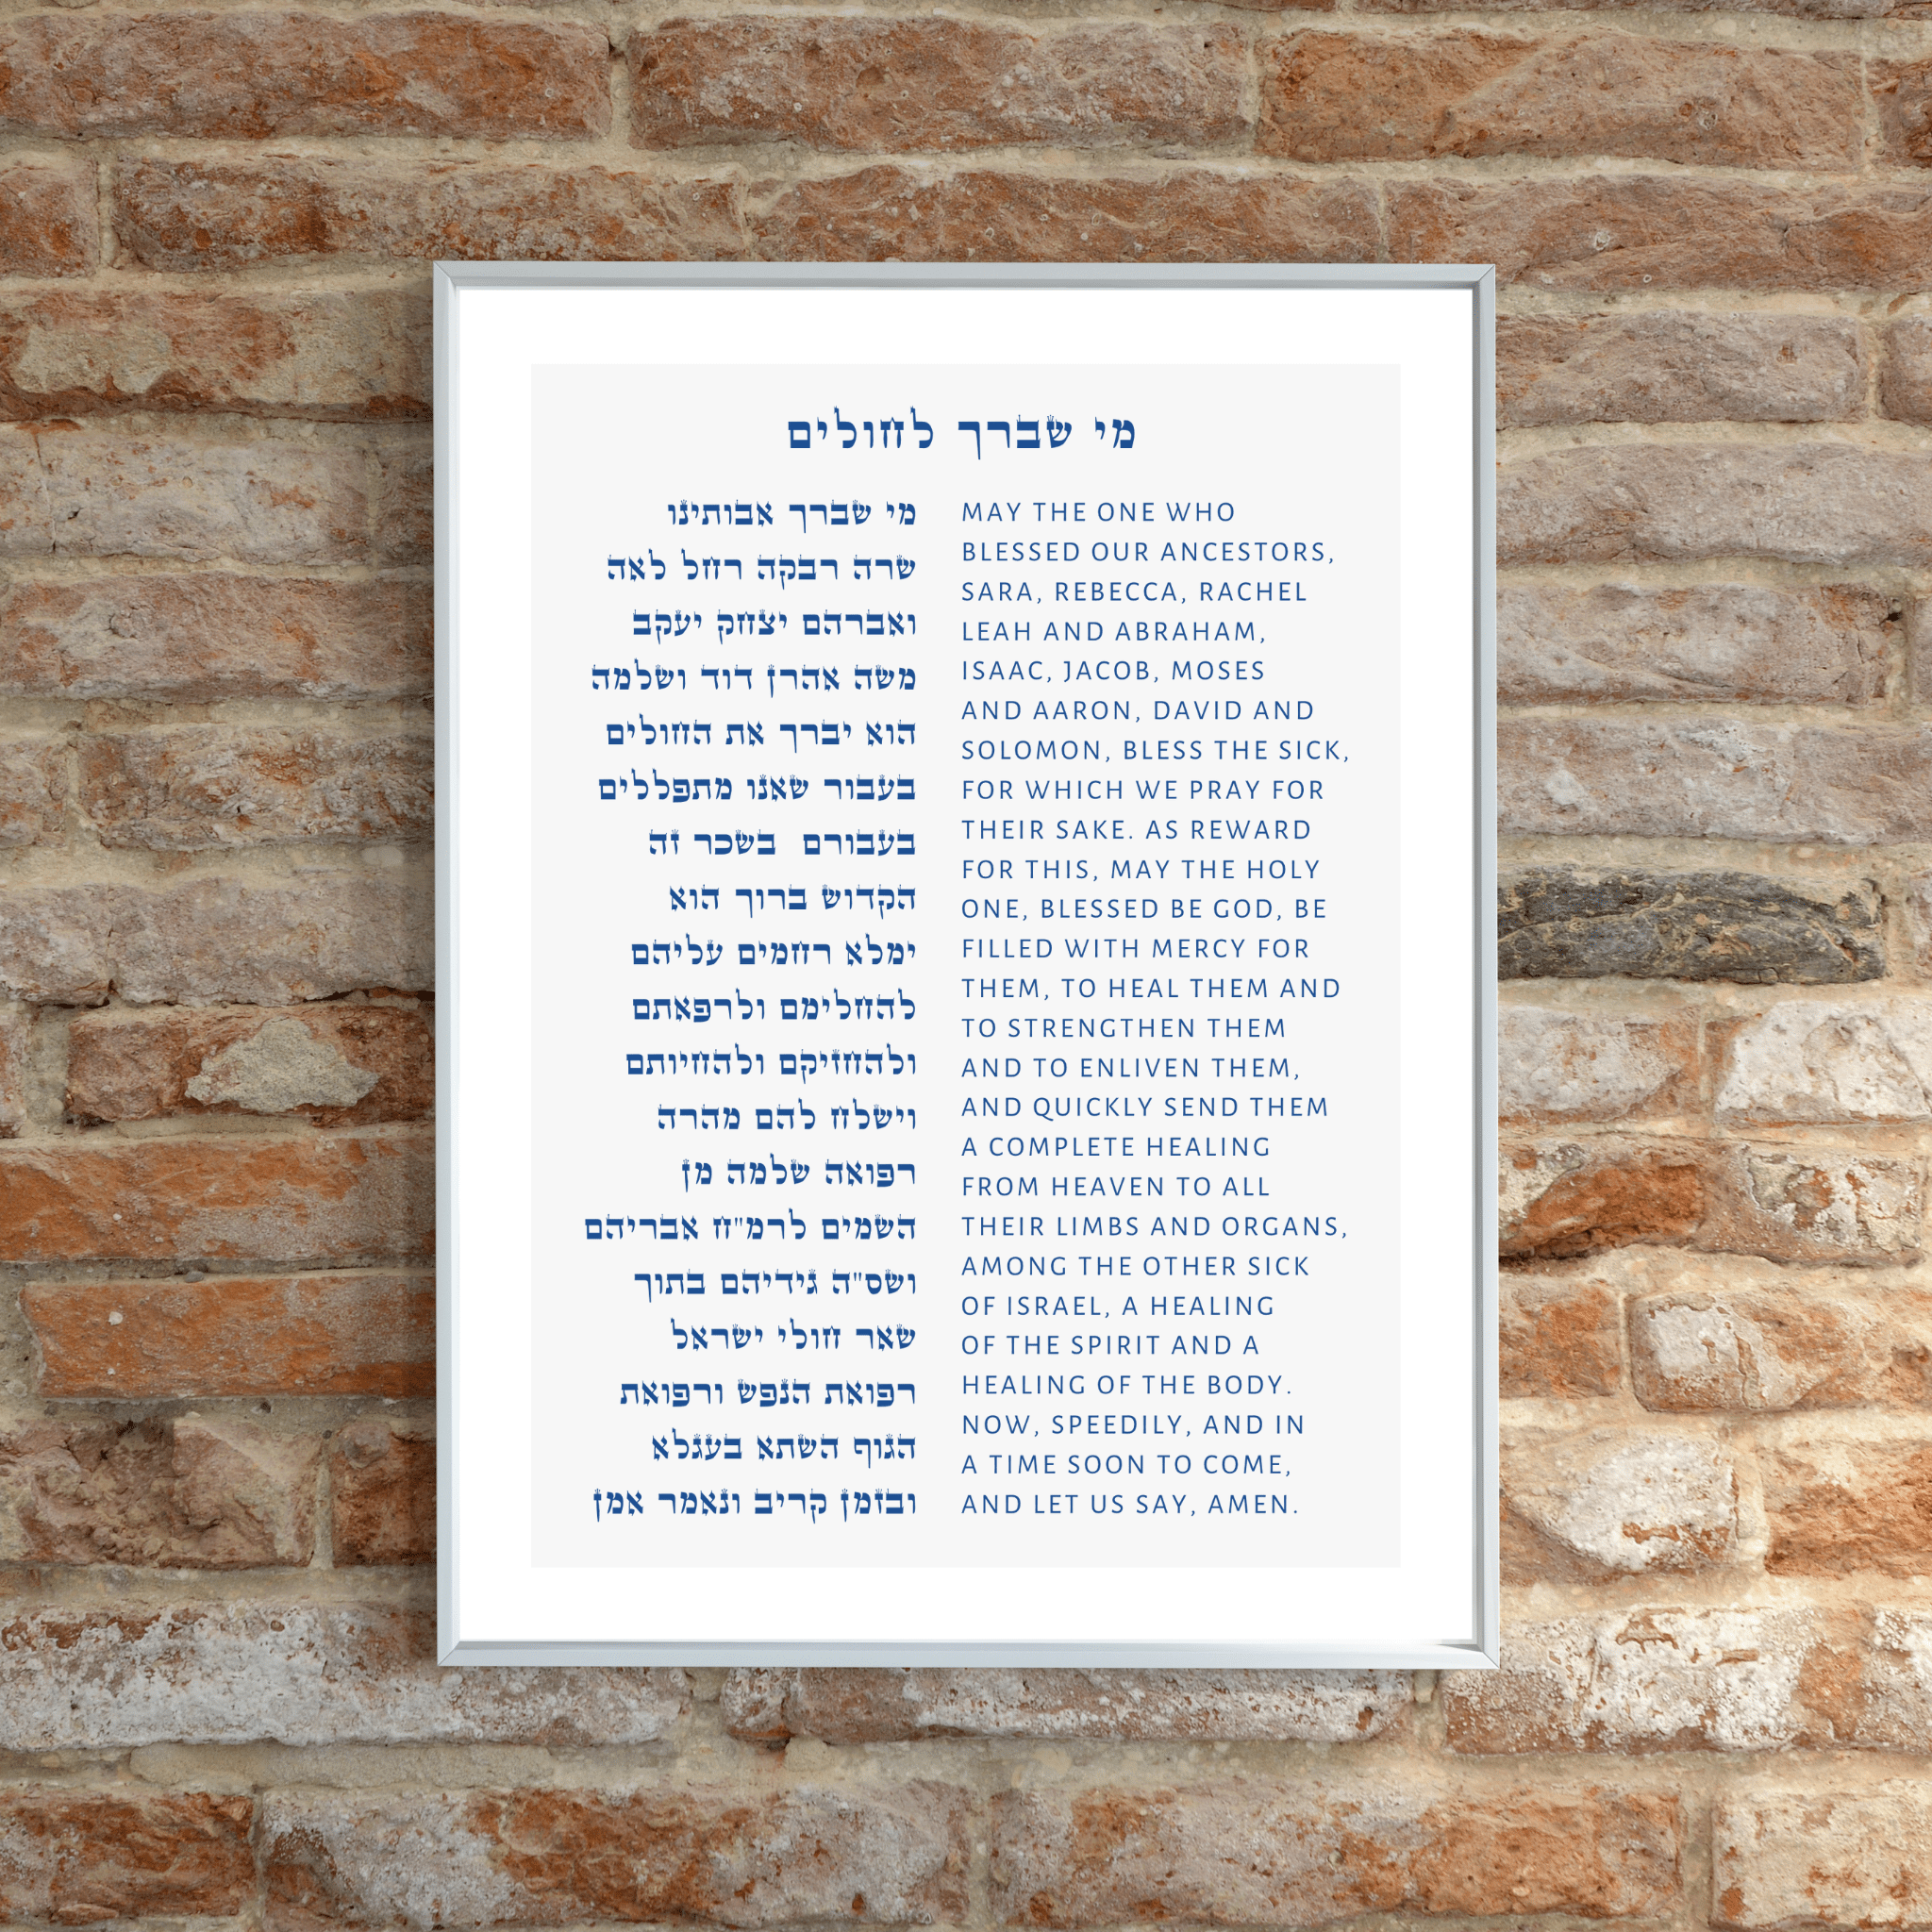 מי שברך לחולים
מי שברך אבותינו
שרה רבקה רחל לאה
ואברהם יצחק יעקב
משה אהרן דוד ושלמה
הוא יברך את החולים
בעבור שאנו מתפללים
בעבורם בשכר זה
הקדוש ברוך הוא
ימלא רחמים עליהם
להחלימם ולרפאתם
ולהחזיקם ולהחיותם
וישלח להם מהרה
רפואה שלמה מן
השמים לרמ"ח אבריהם
ושס"ה גידיהם בתוך
שאר חולי ישראל
רפואת הנפש ורפואת
הגוף השתא בעגלא
ובזמן קריב ונאמר אמן
MAY THE ONE WHO
BLESSED OUR ANCESTORS,
SARA, REBECCA, RACHEL
LEAH AND ABRAHAM,
ISAAC, JACOB, MOSES
AND AARON, DAVID AND
SOLOMON, BLESS THE SICK,
FOR WHICH WE PRAY FOR
THEIR SAKE. AS REWARD
FOR THIS, MAY THE HOLY
ONE, BLESSED BE GOD, BE
FILLED WITH MERCY FOR
THEM, TO HEAL THEM AND
TO STRENGTHEN THEM
AND TO ENLIVEN THEM,
AND QUICKLY SEND THEM
A COMPLETE HEALING
FROM HEAVEN TO ALL
THEIR LIMBS AND ORGANS,
AMONG THE OTHER SICK
OF ISRAEL, A HEALING
OF THE SPIRIT AND A
HEALING OF THE BODY.
NOW, SPEEDILY, AND IN
A TIME SOON TO COME,
AND LET US SAY, AMEN.